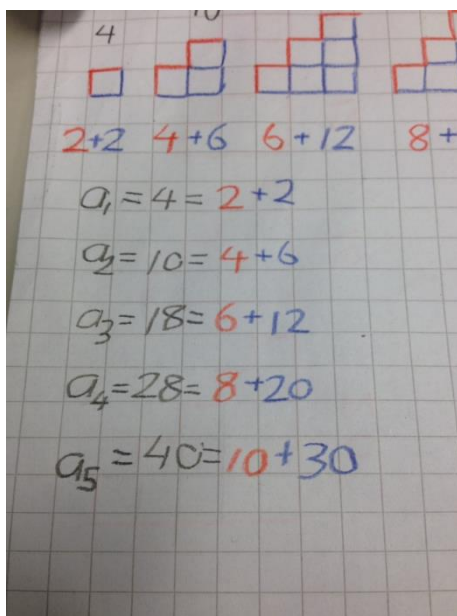 4 10
2+2 4+6 6+12 8+
a₁=4=2+2
a₂=10=4+6
a₃=18=6+12
a₄=28=8+20
a₅=40=10+30